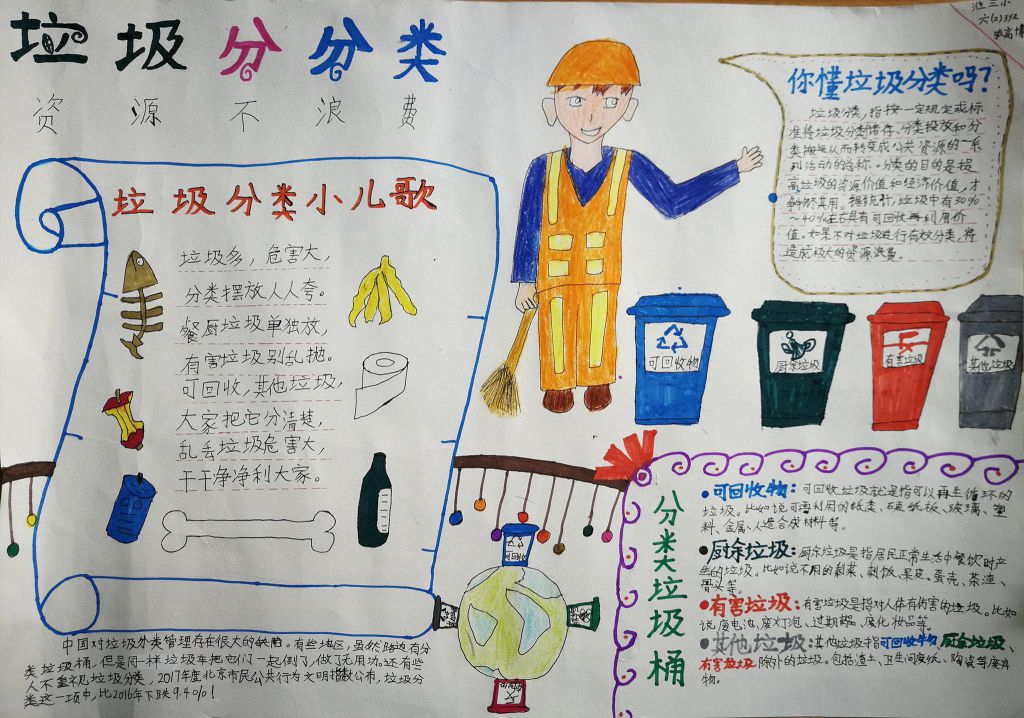 垃圾分分类
资源不浪费
淮三小
六(2)
你懂垃圾分类吗?
垃圾分类,指按一定规定或标
准将垃圾分类储存、分类投放和分
类搬运从而转变成公共资源的一系
列活动的总称。分类的目的是提
高垃圾的资源价值和经济价值,才
用。据统计,垃圾中有30%
~40%左右具有可回收再利用价
值。如果不对垃圾进行有效分类,将
造成极大的资源浪费。
垃圾分类小儿歌
垃圾多,危害大,
分类摆放人人夸。
餐厨垃圾单独放,
有害垃圾别乱抛。
可回收,其他垃圾,
大家把它分清楚,
乱丢垃圾危害大,
干干净净利大家。
可回收物
厨余垃圾
有害垃圾
其他垃圾
分类垃圾桶
可回收物:可回收垃圾就是指可以再生循环的
垃圾。比如说可再利用的纸类、硬纸板、玻璃、塑
料、金属、人造合成材料等。
厨余垃圾:厨余垃圾是指居民正常生活中餐饮时产
生的垃圾。比如说不用的剩菜、剩饭、果皮、蛋壳、茶渣、
骨头等。
有害垃圾:有害垃圾是指对人体有伤害的垃圾。比如
说废电池、废灯泡、过期药、废化妆品等。
其他垃圾:其他垃圾指可回收物、厨余垃圾、
有害垃圾除外的垃圾。包括渣土、卫生间废纸、陶瓷等废弃
物。
可回收
中国对垃圾分类管理存在很大的缺陷。有些地区,虽然路边有分
类垃圾桶,但是同样垃圾车把它们一起倒了,做了无用功。还有些
人不重视垃圾分类,2017年度北京市民公共行为文明指数公布,垃圾分
类这一项中,比2016年下跌9.40%!